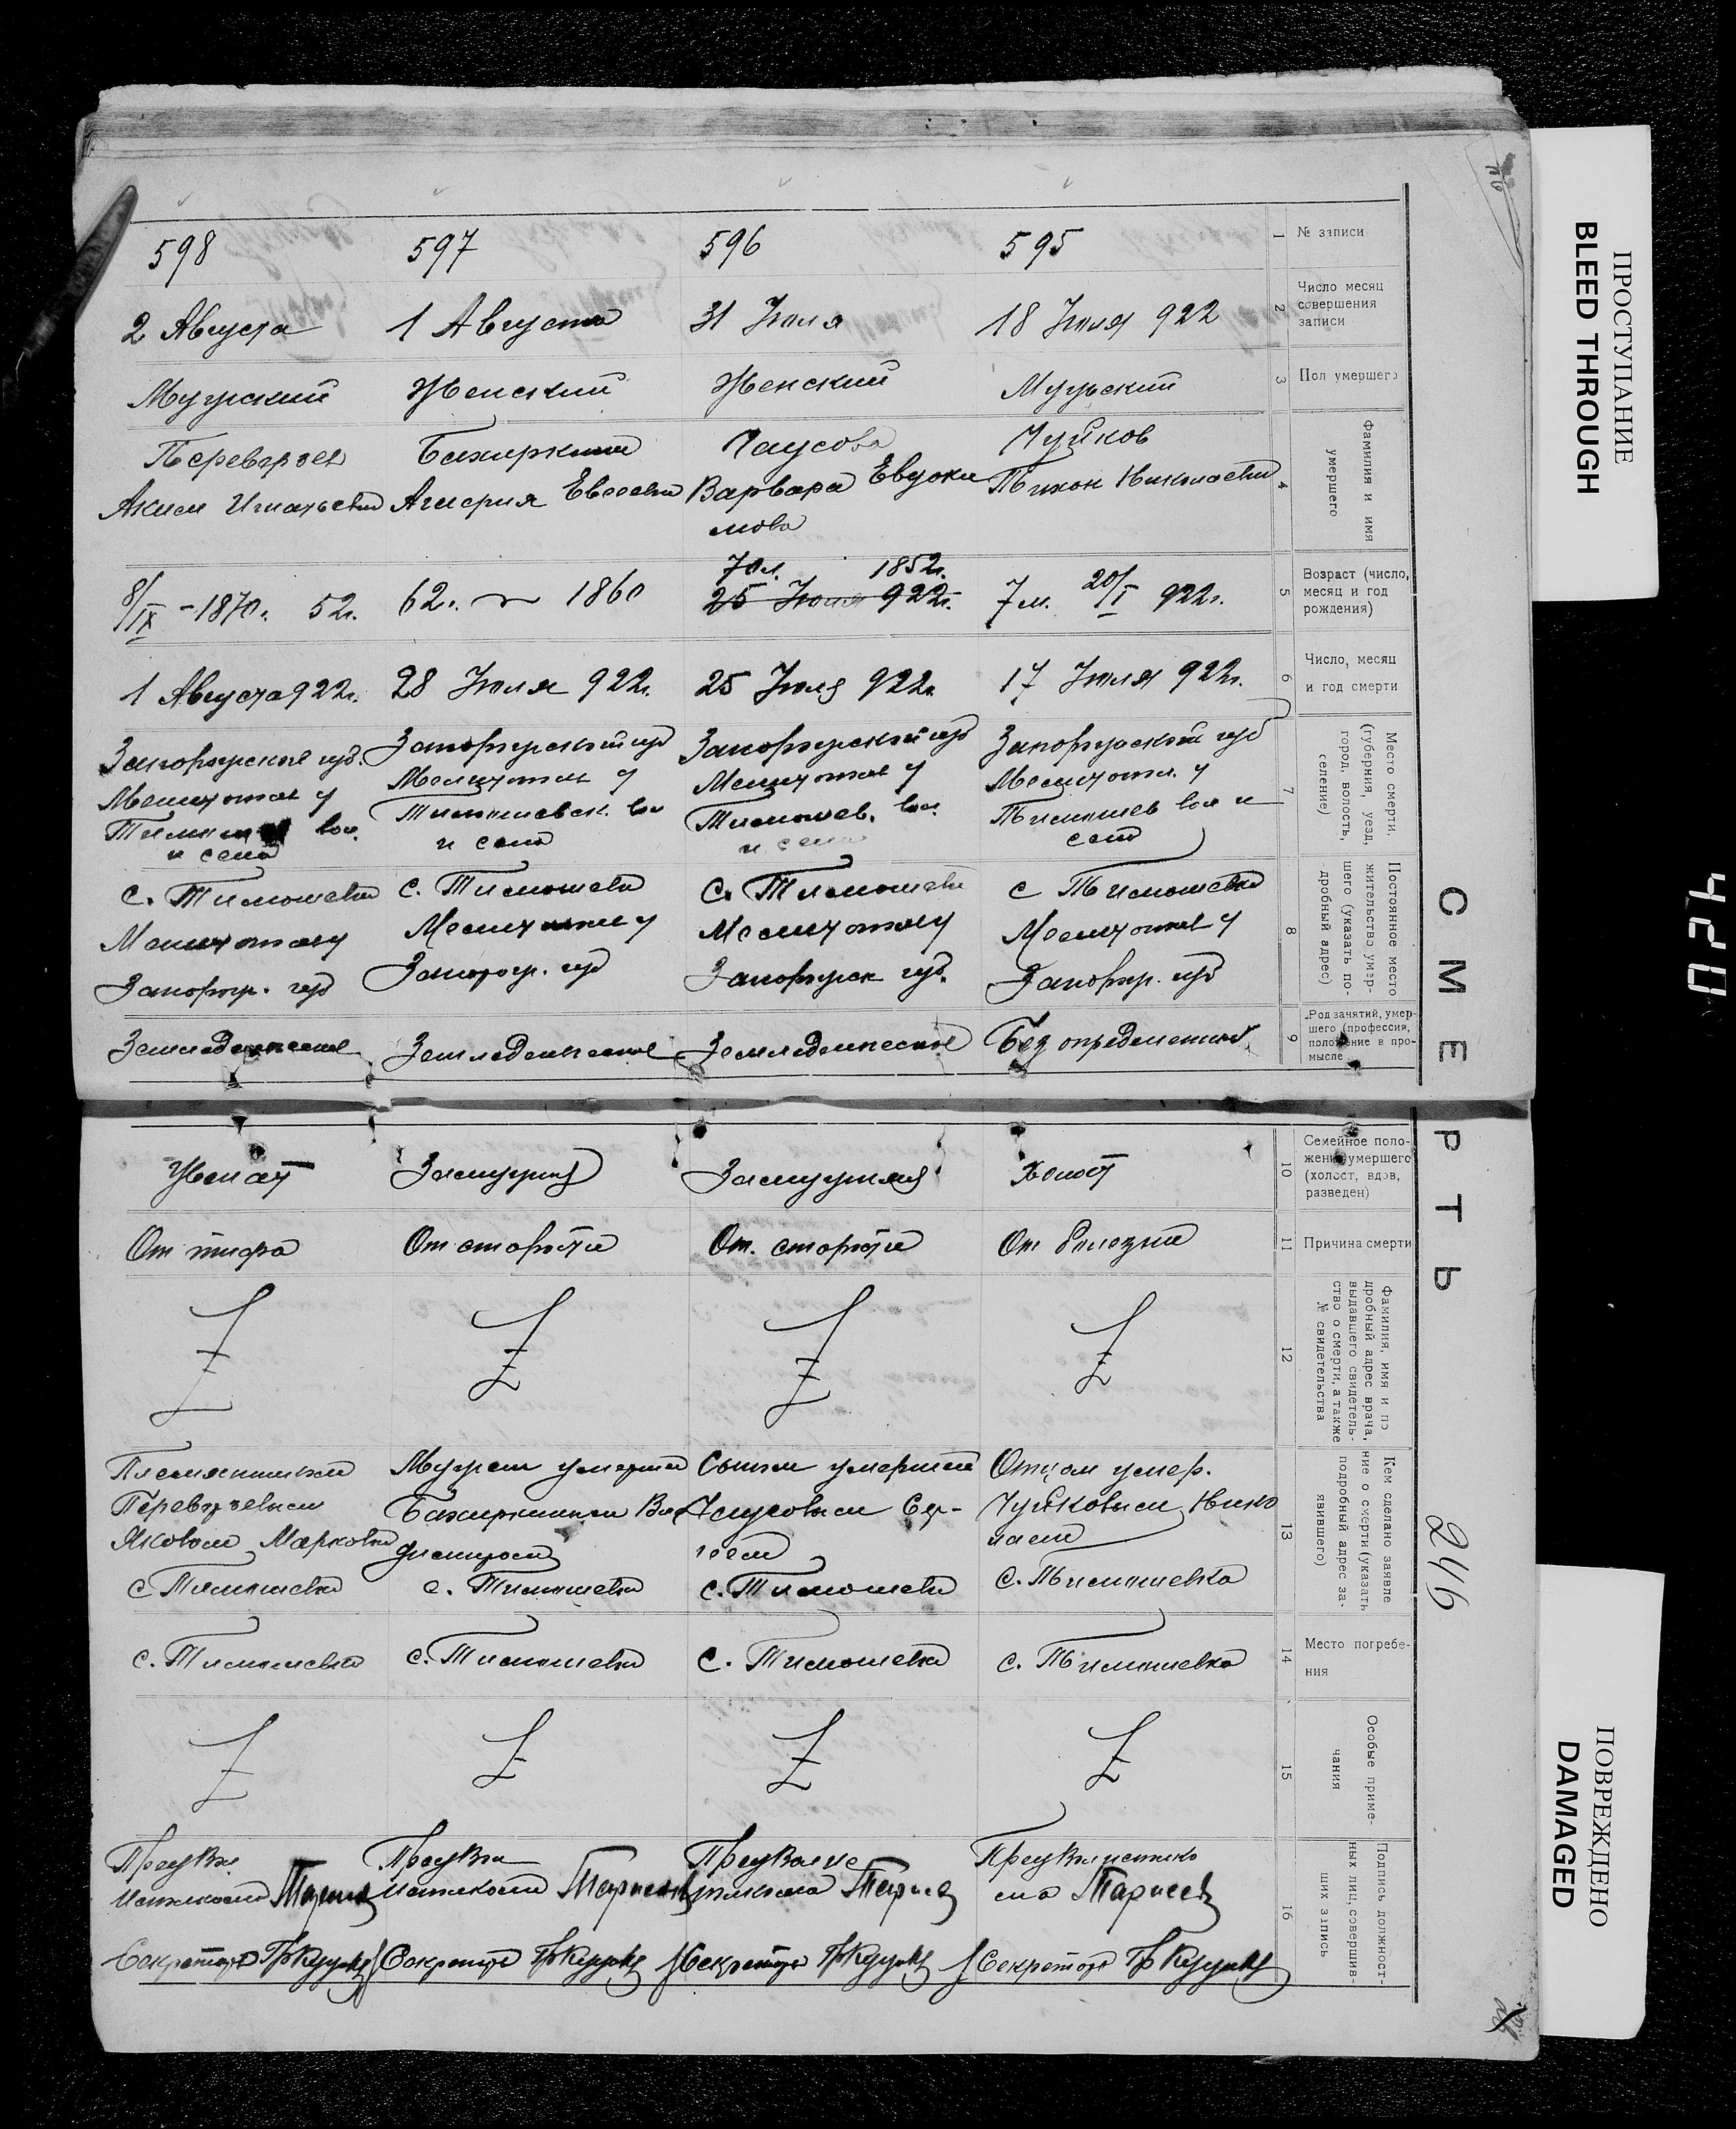 ПРОСТУПАНИЕ
BLEED THROUGH
ПОВРЕЖДЕНО
DAMAGED
420
СМЕРТЬ
246
1
№ записи
595
596
597
598
2
Число месяц
совершения
записи
18 Июля 922
31 Июля
1 Августа
2 Августа
3
Пол умершего
Мужский
Женский
Женский
Мужский
4
Фамилия и имя
умершего
Чуйков
Тихон Николаевич
Чаусова
Варвара Евдоки
мова
Агафия Евсеевна
Аким Игнатьевич
5
Возраст (число,
месяц и год
рождения)
7 м. 20/I 922г.
70л. 1852г.
25 Июля 922г.
62г. 1860
8/IX - 1870г. 52г.
6
Число, месяц
и год смерти
17 Июля 922г.
25 Июля 922г.
28 Июля 922г.
1 Августа 922г.
7
Место смерти.
(губерния, уезд,
город, волость,
селение)
Запорожской губ
Мелитопол у
Тимошев вол и
село
Запорожской губ
Мелитопол у
Тимошев. вол.
и село
Запорожской губ
Мелитопол у
Тимошевск. вол
и село
Запорожской губ.
Мелитопол у
вол.
и село
8
Постоянное место
жительство умер-
шего (указать по-
дробный адрес)
с Тимошевка
Мелитопол у
Запорож. губ
с. Тимошевка
Мелитопол у
Запорожск губ.
с. Тимошевка
Мелитопол у
Запорож. губ
с. Тимошевка
Мелитопол у
Запорож. губ
9
Род занятий, умер-
шего (профессия,
положение в про-
мысле
Без определенной
Земледелческое
Земледелческое
Земледелческое
10
Семейное поло-
жение умершего
(холост, вдов,
разведен)
Холост
Замужняя
Замужняя
Женат
11
Причина смерти
От болезни
От. старости
От старости
От тифа
12
Фамилия, имя и по
дробный адрес врача,
выдавшего свидетель-
ство о смерти, а также
№ свидетельства
13
Кем сделано заявле
ние о смерти (указать
подробный адрес за-
явившего)
Отцом умер.
Чуйковым Нико
лаем
с. Тимошевка
Сыном умершей
Чаусовым Сер-
геем
с. Тимошевка
Мужем умершей
с. Тимошевка
Племянником
Яковом Марковым
с Тимошевка
14
Место погребе-
ния
с. Тимошевка
с. Тимошевка
с. Тимошевка
с. Тимошевка
15
Особые приме-
чания
16
Подпись должност-
ных лиц, совершив-
ших запись
Секретарь
Секретарь
Секретарь
Секретарь